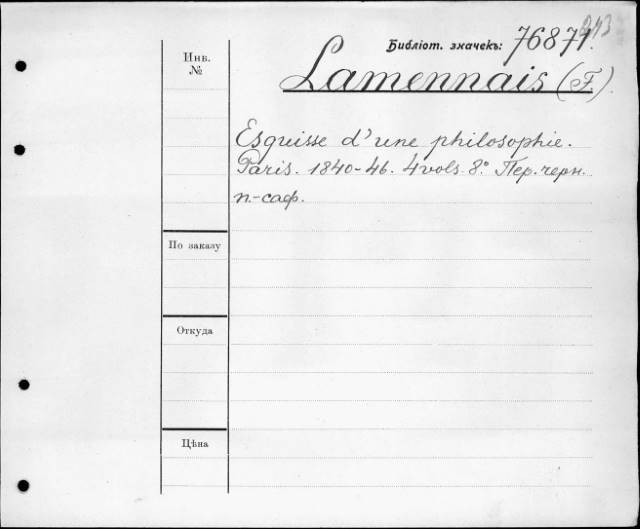 243
Библіот. значекъ: 76871.
Инв. №
Lamennais (F).
Esquisse d'une philosophie.
Paris. 1840-46. 4 vols. 8° Пер. черн.
п-саф.
По заказу
Откуда
Цѣна